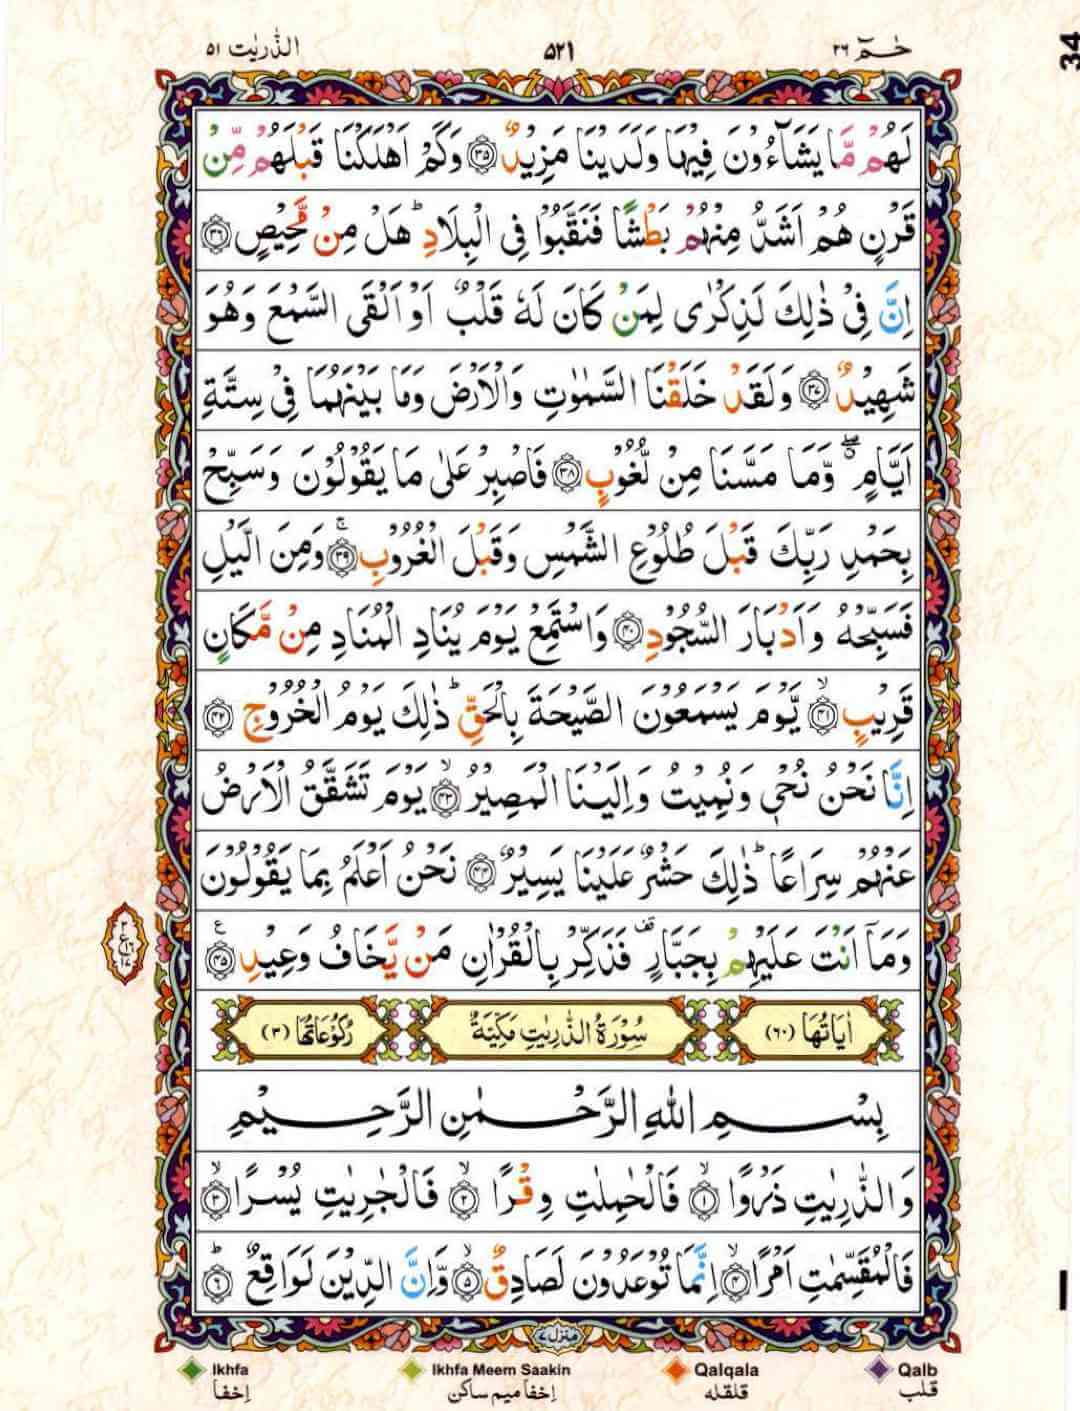 الذّٰریٰت ۵۱ ۵۲۱ حٰمٓ ۲۶
34
لَهُمْ مَّا يَشَآءُوْنَ فِيْهَا وَلَدَيْنَا مَزِيْدٌ ﴿۳۵﴾ وَكَمْ اَهْلَكْنَا قَبْلَهُمْ مِّنْ
قَرْنٍ هُمْ اَشَدُّ مِنْهُمْ بَطْشًا فَنَقَّبُوْا فِى الْبِلَادِ ؕ هَلْ مِنْ مَّحِيْصٍ ﴿۳۶﴾
اِنَّ فِىْ ذٰلِكَ لَذِكْرٰى لِمَنْ كَانَ لَهٗ قَلْبٌ اَوْ اَلْقَى السَّمْعَ وَهُوَ
شَهِيْدٌ ﴿۳۷﴾ وَلَقَدْ خَلَقْنَا السَّمٰوٰتِ وَالْاَرْضَ وَمَا بَيْنَهُمَا فِىْ سِتَّةِ
اَيَّامٍ ۖ وَّمَا مَسَّنَا مِنْ لُّغُوْبٍ ﴿۳۸﴾ فَاصْبِرْ عَلٰى مَا يَقُوْلُوْنَ وَسَبِّحْ
بِحَمْدِ رَبِّكَ قَبْلَ طُلُوْعِ الشَّمْسِ وَقَبْلَ الْغُرُوْبِ ۚ﴿۳۹﴾ وَمِنَ الَّيْلِ
فَسَبِّحْهُ وَاَدْبَارَ السُّجُوْدِ ﴿۴۰﴾ وَاسْتَمِعْ يَوْمَ يُنَادِ الْمُنَادِ مِنْ مَّكَانٍ
قَرِيْبٍ ۙ﴿۴۱﴾ يَّوْمَ يَسْمَعُوْنَ الصَّيْحَةَ بِالْحَقِّ ؕ ذٰلِكَ يَوْمُ الْخُرُوْجِ ﴿۴۲﴾
اِنَّا نَحْنُ نُحْىٖ وَنُمِيْتُ وَاِلَيْنَا الْمَصِيْرُ ۙ﴿۴۳﴾ يَوْمَ تَشَقَّقُ الْاَرْضُ
عَنْهُمْ سِرَاعًا ؕ ذٰلِكَ حَشْرٌ عَلَيْنَا يَسِيْرٌ ﴿۴۴﴾ نَحْنُ اَعْلَمُ بِمَا يَقُوْلُوْنَ
وَمَآ اَنْتَ عَلَيْهِمْ بِجَبَّارٍ ۗ فَذَكِّرْ بِالْقُرْاٰنِ مَنْ يَّخَافُ وَعِيْدِ ﴿۴۵﴾ ع
اٰيَاتُهَا (۶۰) سُوْرَةُ الذّٰرِيٰتِ مَكِّيَّةٌ رُكُوْعَاتُهَا (۳)
بِسْمِ اللّٰهِ الرَّحْمٰنِ الرَّحِيْمِ
وَالذّٰرِيٰتِ ذَرْوًا ۙ﴿۱﴾ فَالْحٰمِلٰتِ وِقْرًا ۙ﴿۲﴾ فَالْجٰرِيٰتِ يُسْرًا ۙ﴿۳﴾
فَالْمُقَسِّمٰتِ اَمْرًا ۙ﴿۴﴾ اِنَّمَا تُوْعَدُوْنَ لَصَادِقٌ ۙ﴿۵﴾ وَّاِنَّ الدِّيْنَ لَوَاقِعٌ ؕ﴿۶﴾
منزل ۷
Ikhfa Ikhfa Meem Saakin Qalqala Qalb
اِخفا اِخفا میم ساکن قلقله قلب